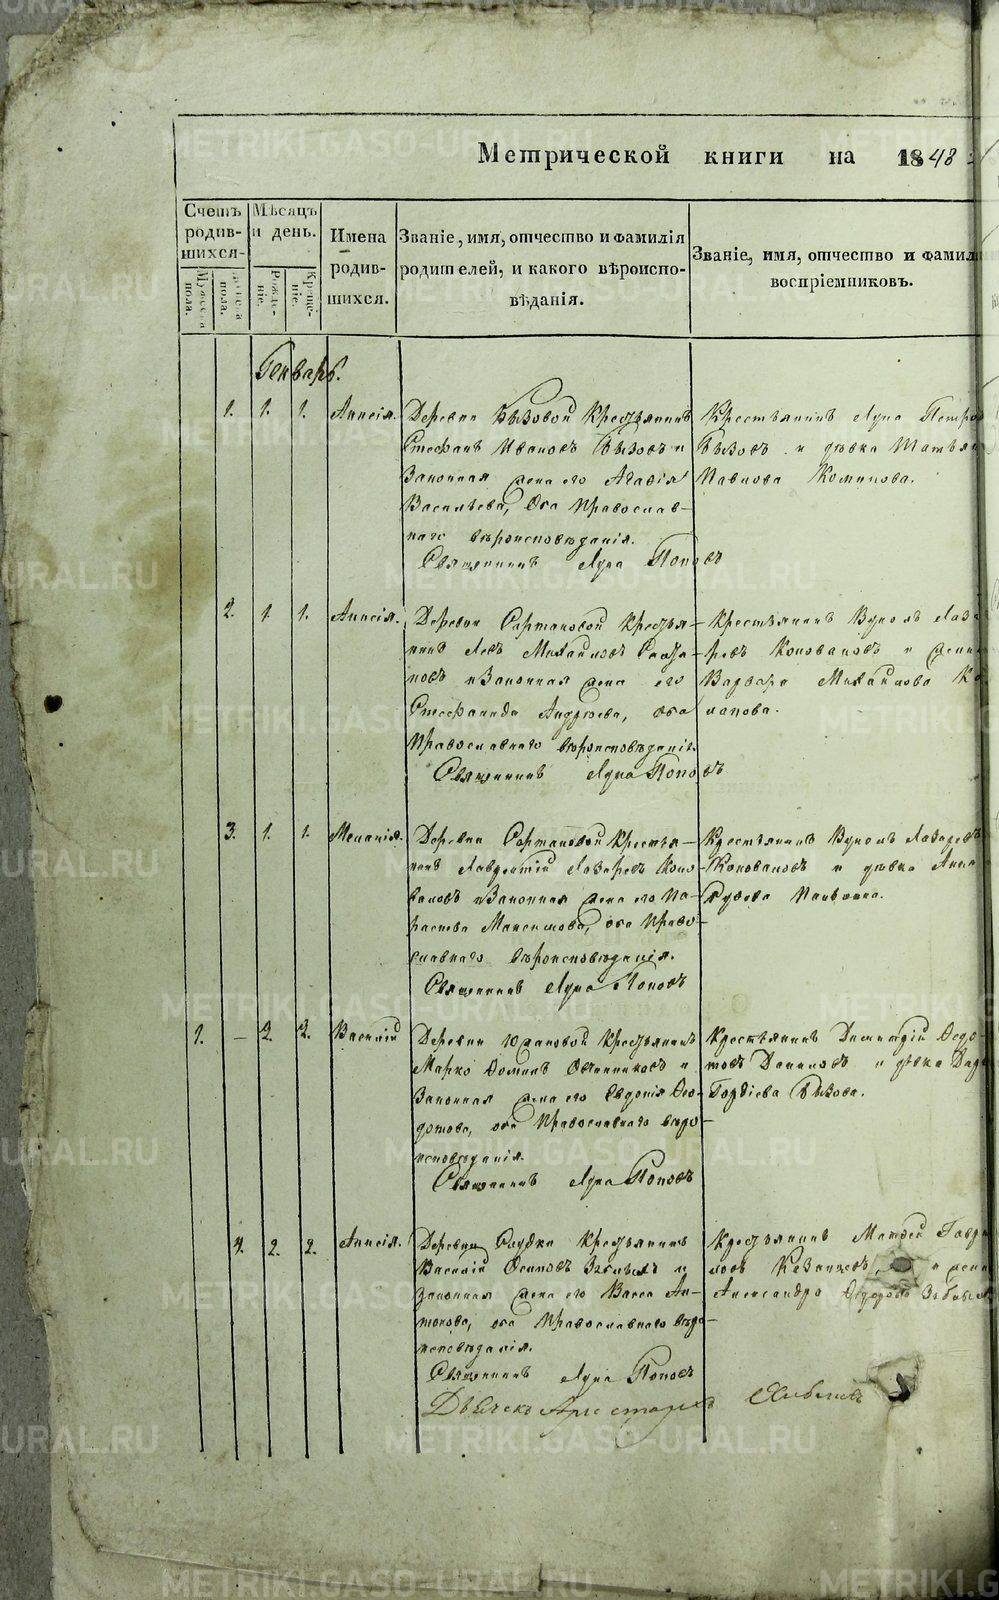 Метрической книги на 1848
Счетъ родив-шихся.
Мѣсяцъ и день.
Имена родив-шихся.
Званіе, имя, отчество и фамилія родителей, и какого вѣроиспо-вѣданія.
Званіе, имя, отчество и фамил
воспріемниковъ.
Мужеска пола.
Женска пола.
Рожде-ніе.
Креще-ніе.
Генварь.
1. 1. 1. Анисія. Деревни Бызовой Крестьянинъ
Стефанъ Ивановъ Бызовъ и
Законная жена его Агафія
Васильева, оба Православ-
наго вѣроисповѣданія.
Священникъ Лука Поповъ
Крестьянинъ Лука Петров
Бызовъ и дѣвка Татьян
Павлова
2. 1. 1. Анисія. Деревни Сартаковой Крестья-
нинъ Левъ Михайловъ
и Законная жена его
Стефанида Андреева, оба
Православнаго вѣроисповѣданія.
Священникъ Лука Поповъ
Крестьянинъ Вуколъ Лаза
ревъ Коноваловъ и
Варвара Михайлова Ко
лапова.
3. 1. 1. Меланія. Деревни Сартаковой Крестья-
нинъ Лаврентій Лазаревъ Коно-
валовъ и Законная жена его Па-
раскева Максимова, оба Право-
славнаго вѣроисповѣданія.
Священникъ Лука Поповъ
Крестьянинъ Вуколъ Лазаревъ
Коноваловъ и дѣвка
1. – 2. 2. Василій Деревни Юдановой Крестьянинъ
Марко Ѳоминъ Овчинниковъ и
Законная жена его Евдокія Ѳео-
дотова, оба Православнаго вѣро-
исповѣданія.
Священникъ Лука Поповъ
Крестьянинъ Димитрій Ѳедо-
товъ Даниловъ и дѣвка Дарь
Гордіева Бызова.
4. 2. 2. Анисія. Деревни Слудки Крестьянинъ
Василій Осиповъ и
законная жена его Васса Ан-
тонова, оба Православнаго вѣро-
исповѣданія.
Священникъ Лука Поповъ
Крестьянинъ Матѳей Гаври
ловъ и жена
Александра
Дьячекъ Аристархъ
METRIKI.GASO-URAL.RU